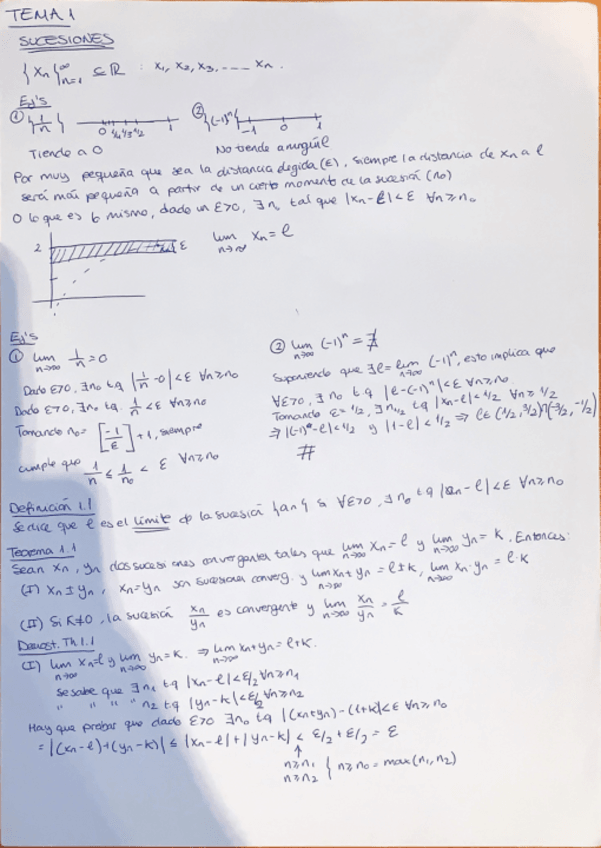 TEMA 1
SUCESIONES
{xn}∞n=1 ⊆ ℝ : x1, x2, x3, ---- xn.
Ej's
① {1/n} 0 1/4 1/3 1/2 1
② {(-1)^n} -1 0 1
Tiende a 0
No tiende a ningún l
Por muy pequeña que sea la distancia elegida (ε), siempre la distancia de xn a l
será más pequeña a partir de un cierto momento de la sucesión (n0)
O lo que es lo mismo, dado un ε>0, ∃ n0 tal que |xn-l|<ε ∀n≥n0
2 ε
lim n→∞ xn = l
Ej's
① lim n→∞ 1/n = 0
Dado ε>0, ∃n0 tq |1/n - 0|<ε ∀n≥n0
Dado ε>0, ∃n0 tq. 1/n < ε ∀n≥n0
Tomando n0 = [1/ε] + 1, siempre
cumple que 1/n ≤ 1/n0 < ε ∀n≥n0
② lim n→∞ (-1)^n = ∄
Suponiendo que ∃l = lim n→∞ (-1)^n, esto implica que
∀ε>0, ∃ n0 tq |l-(-1)^n|<ε ∀n≥n0
Tomando ε=1/2, ∃ n1/2 tq |xn-l|<1/2 ∀n≥1/2
⇒ |(-1)^n-l|<1/2 y |1-l|<1/2 ⇒ l∈(1/2, 3/2)∩(-3/2, -1/2)
#
Definición 1.1
Se dice que l es el límite de la sucesión {an} si ∀ε>0, ∃ n0 tq |an-l|<ε ∀n≥n0
Teorema 1.1
Sean xn, yn dos sucesiones convergentes tales que lim n→∞ xn = l y lim n→∞ yn = k. Entonces:
(I) xn±yn, xn=yn son sucesiones converg. y lim xn±yn = l±k, lim n→∞ xn·yn = l·k
(II) Si k≠0, la sucesión xn/yn es convergente y lim n→∞ xn/yn = l/k
Demost. Th 1.1
(I) lim n→∞ xn=l y lim n→∞ yn=k. ⇒ lim n→∞ xn+yn = l+k.
Se sabe que ∃ n1 tq |xn-l|<ε/2 ∀n≥n1
" " " n2 tq |yn-k|<ε/2 ∀n≥n2
Hay que probar que dado ε>0 ∃n0 tq |(xn+yn)-(l+k)|<ε ∀n≥n0
= |(xn-l)+(yn-k)| ≤ |xn-l|+|yn-k| < ε/2 + ε/2 = ε
↑
n≥n1
n≥n2 } n≥n0 = max(n1, n2)